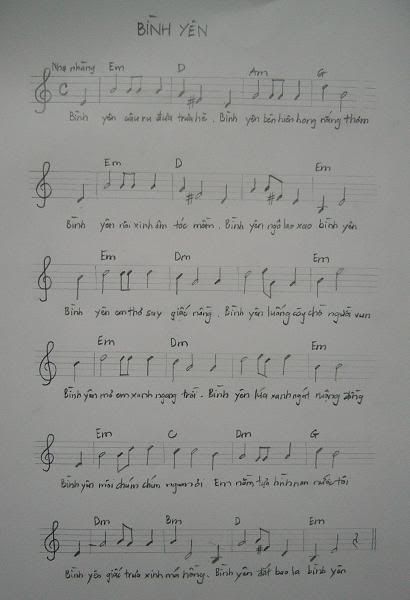 BÌNH YÊN
Nhẹ nhàng Em D Am G
Bình yên câu ru đưa trưa hè. Bình yên bên hiên hong nắng thơm
Em D Em
Bình yên rồi xinh ấm tóc mềm. Bình yên ngô lao xao bình yên
Em Dm Em
Bình yên em thơ say giấc nồng. Bình yên luống cày chờ người vun
Em Dm Em
Bình yên mơ em xanh ngang trời. Bình yên lúa xanh ngát ruộng đồng
Em C Dm G
Bình yên môi chúm chím ngoan ơi Em nằm tựa bình nan nước tôi
Dm Bm D Em
Bình yên giấc trưa xinh má hồng. Bình yên đất bao la bình yên